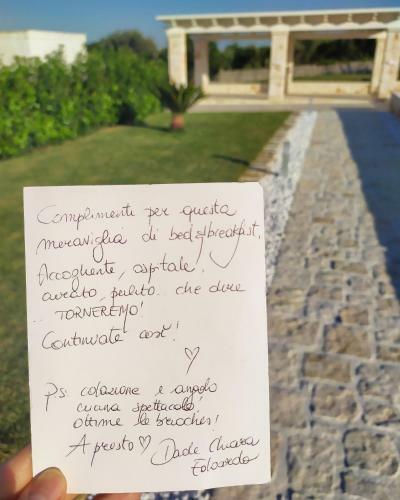 Complimenti per questa
meraviglia di bed&breakfast.
Accogliente, ospitale,
curato, pulito.. che dire
.. TORNEREMO!
Continuate così!
♡
Ps: colazione e angolo
cucina spettacolo!
ottime le brioches!
A presto ♡ Dade Chiara
Edoardo